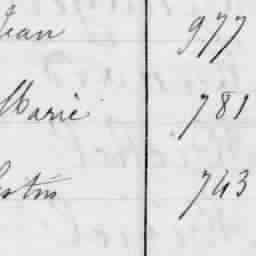 Jean 977
Marie 781
743